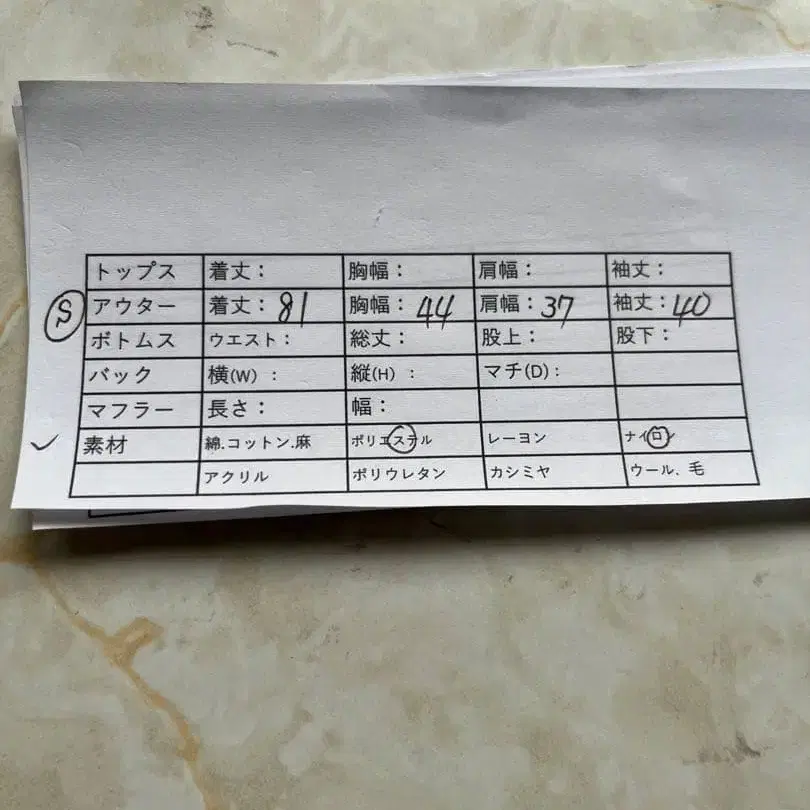 トップス 着丈： 胸幅： 肩幅： 袖丈：
S アウター 着丈：81 胸幅：44 肩幅：37 袖丈：40
ボトムス ウエスト： 総丈： 股上： 股下：
バック 横(W)： 縦(H)： マチ(D)：
マフラー 長さ： 幅：
✓ 素材 綿.コットン.麻 ポリエステル レーヨン ナイロン
アクリル ポリウレタン カシミヤ ウール、毛